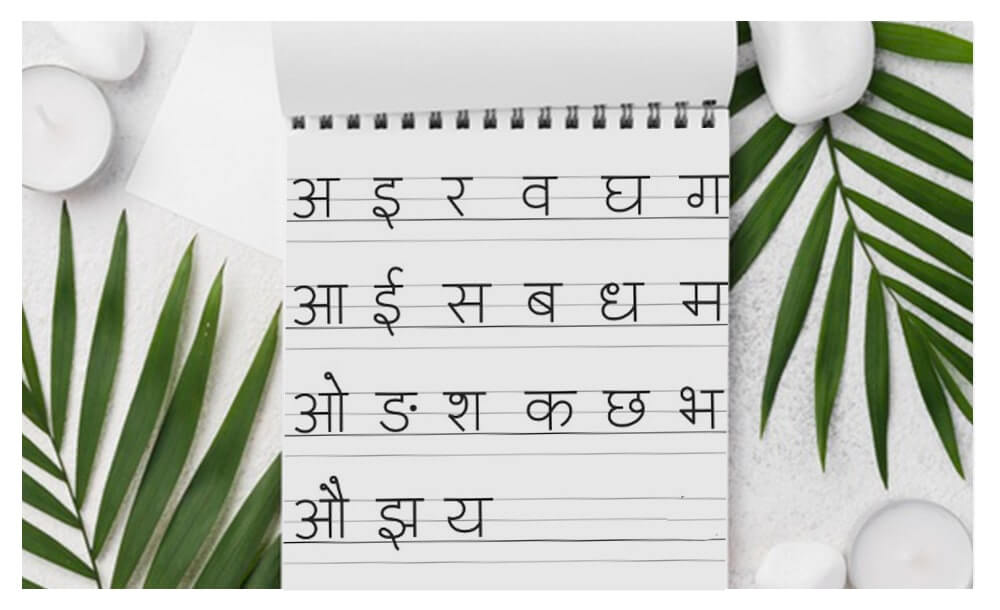 अ इ र व घ ग
आ ई स ब ध म
ओ ङ श क छ भ
औ झ य